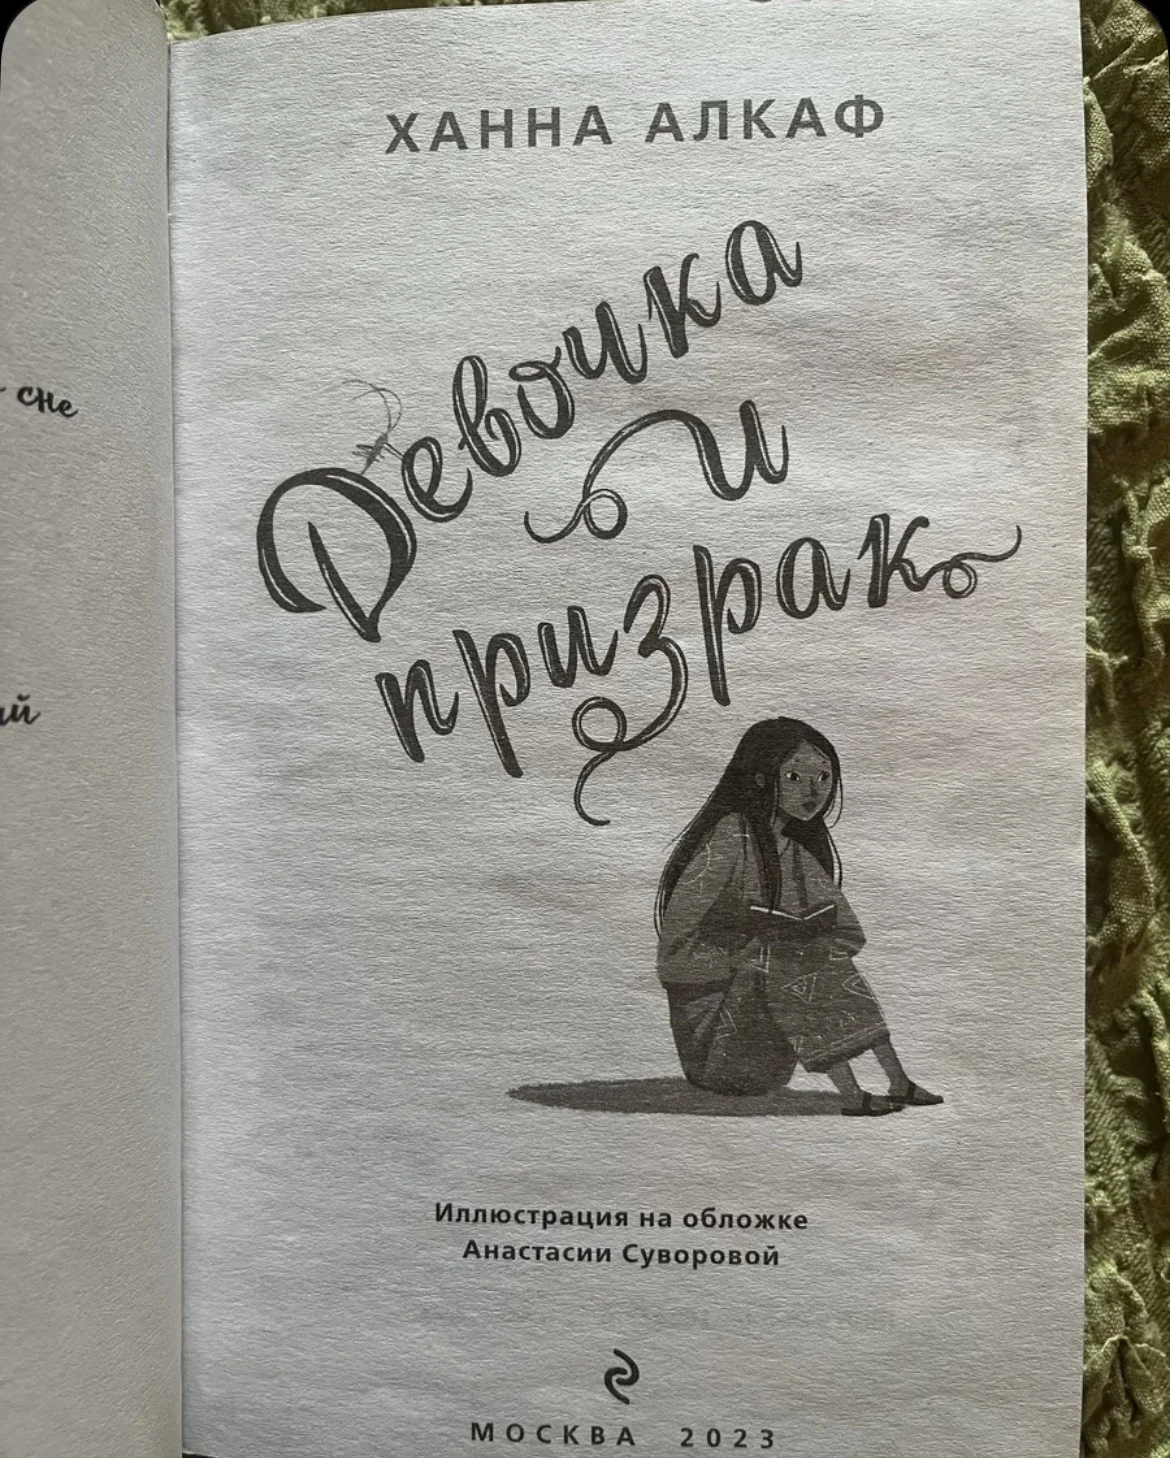 сне
ий
ХАННА АЛКАФ
Девочка
и
призрак
Иллюстрация на обложке
Анастасии Суворовой
МОСКВА 2023